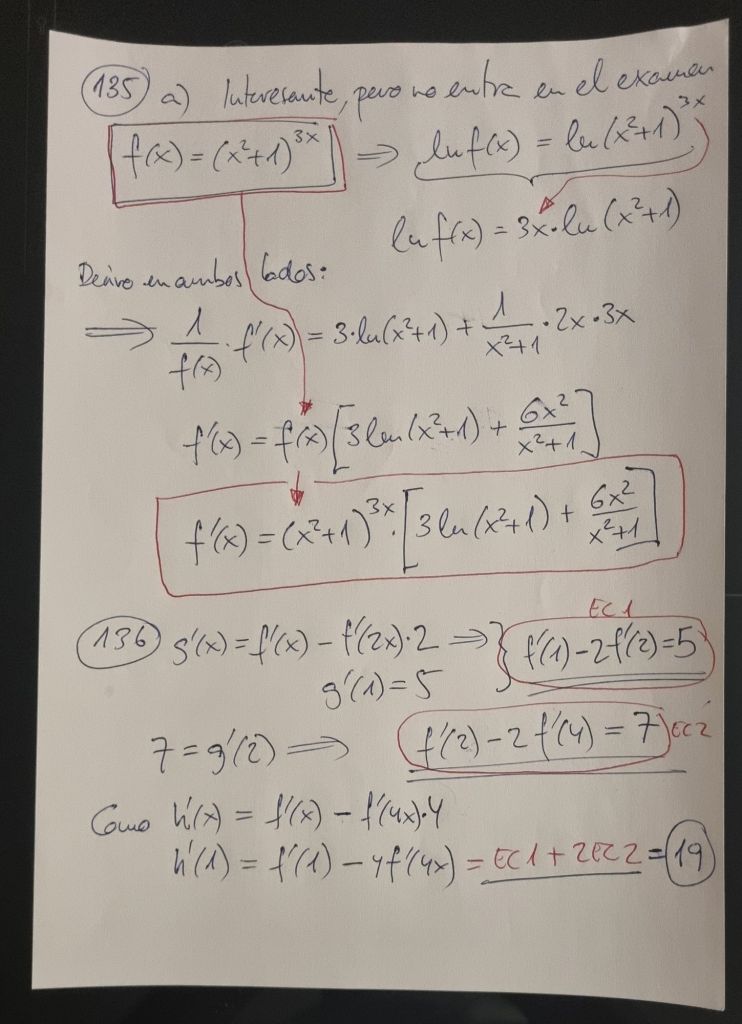 135 a) Interesante, pero no entra en el examen
f(x) = (x²+1)^3x ⇒ ln f(x) = ln (x²+1)^3x
ln f(x) = 3x·ln (x²+1)
Derivo en ambos lados:
⇒ 1/f(x) · f'(x) = 3·ln(x²+1) + 1/x²+1 · 2x · 3x
f'(x) = f(x) [3 ln (x²+1) + 6x²/x²+1]
f'(x) = (x²+1)^3x · [3 ln (x²+1) + 6x²/x²+1]
EC1
136 g'(x) = f'(x) − f'(2x)·2 ⇒ } f'(1) − 2f'(2) = 5
g'(1) = 5
7 = g'(2) ⇒ f'(2) − 2 f'(4) = 7 EC2
Como h'(x) = f'(x) − f'(4x)·4
h'(1) = f'(1) − 4f'(4x) = EC1 + 2EC2 = 19